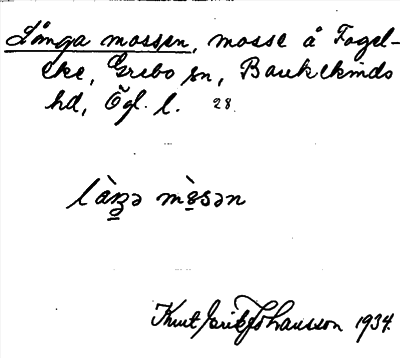 Långa mossen, mosse å Fogel-
eke, Grebo sn, Bankekinds
hd, Ögl. l. 28.
làŋə mòsən
Knut Erik Johansson 1934.